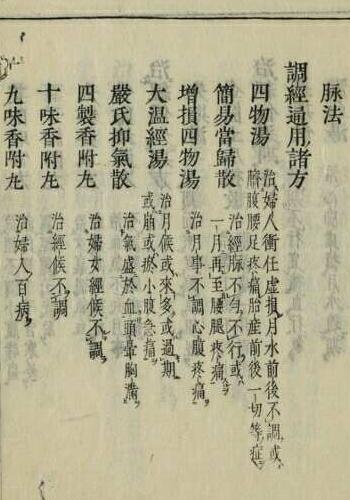 脉法
調經通用諸方
四物湯 治婦人衝任虛損月水前後不調或
臍腹腰足疼痛胎産前後一切等症
簡易當歸散 治經脉不勻不行或
一月再至腰腿疼痛
增損四物湯 治月事不調心腹疼痛
大温經湯 治月候或來多或過期
或崩或瘀小腹急痛
嚴氏抑氣散 治氣盛於血頭暈胸滿
四製香附丸 治婦女經候不調
十味香附丸 治經候不調
九味香附丸 治婦人百病